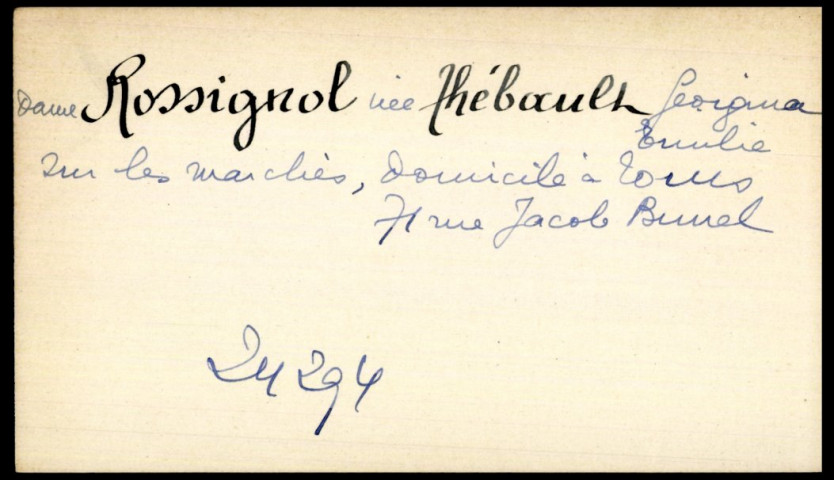 Dame Rossignol née Thébault Georgina
Emilie
sur les marchés, domicilé à Tours
71 rue Jacob Bunel
24294